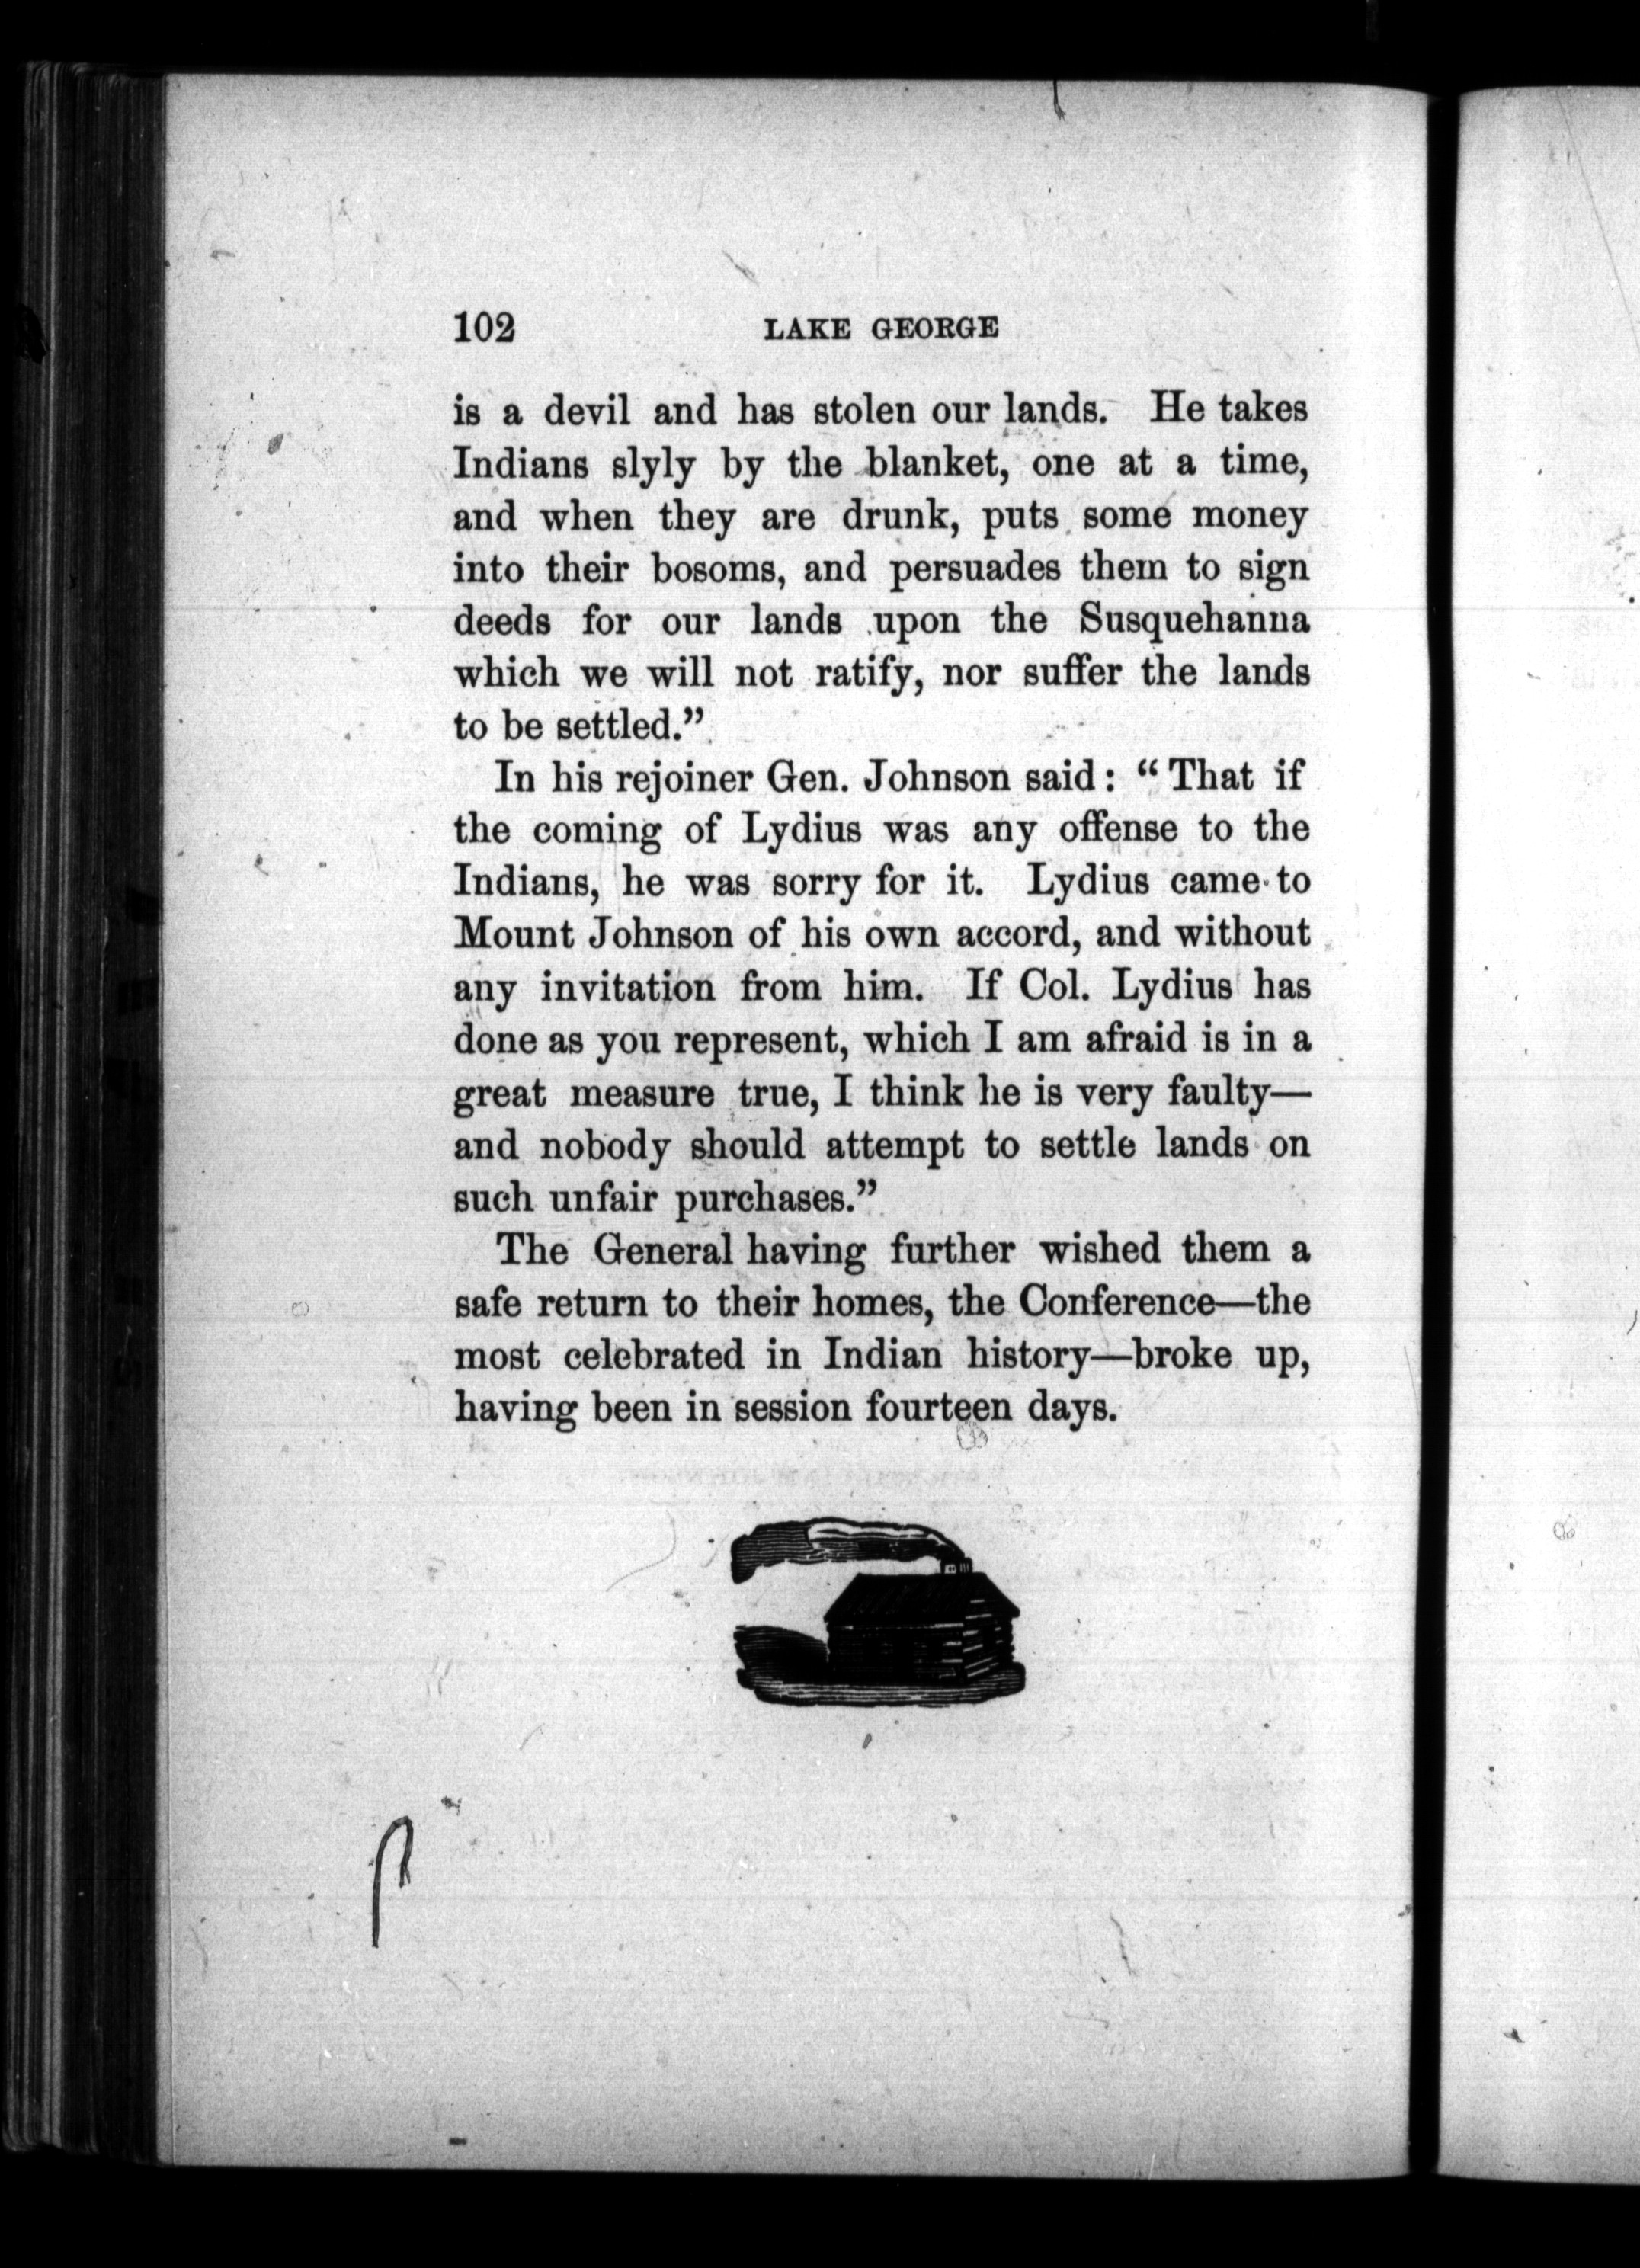 102 LAKE GEORGE
is a devil and has stolen our lands. He takes
Indians slyly by the blanket, one at a time,
and when they are drunk, puts some money
into their bosoms, and persuades them to sign
deeds for our lands upon the Susquehanna
which we will not ratify, nor suffer the lands
to be settled.”
In his rejoiner Gen. Johnson said: “That if
the coming of Lydius was any offense to the
Indians, he was sorry for it. Lydius came to
Mount Johnson of his own accord, and without
any invitation from him. If Col. Lydius has
done as you represent, which I am afraid is in a
great measure true, I think he is very faulty—
and nobody should attempt to settle lands on
such unfair purchases.”
The General having further wished them a
safe return to their homes, the Conference—the
most celebrated in Indian history—broke up,
having been in session fourteen days.